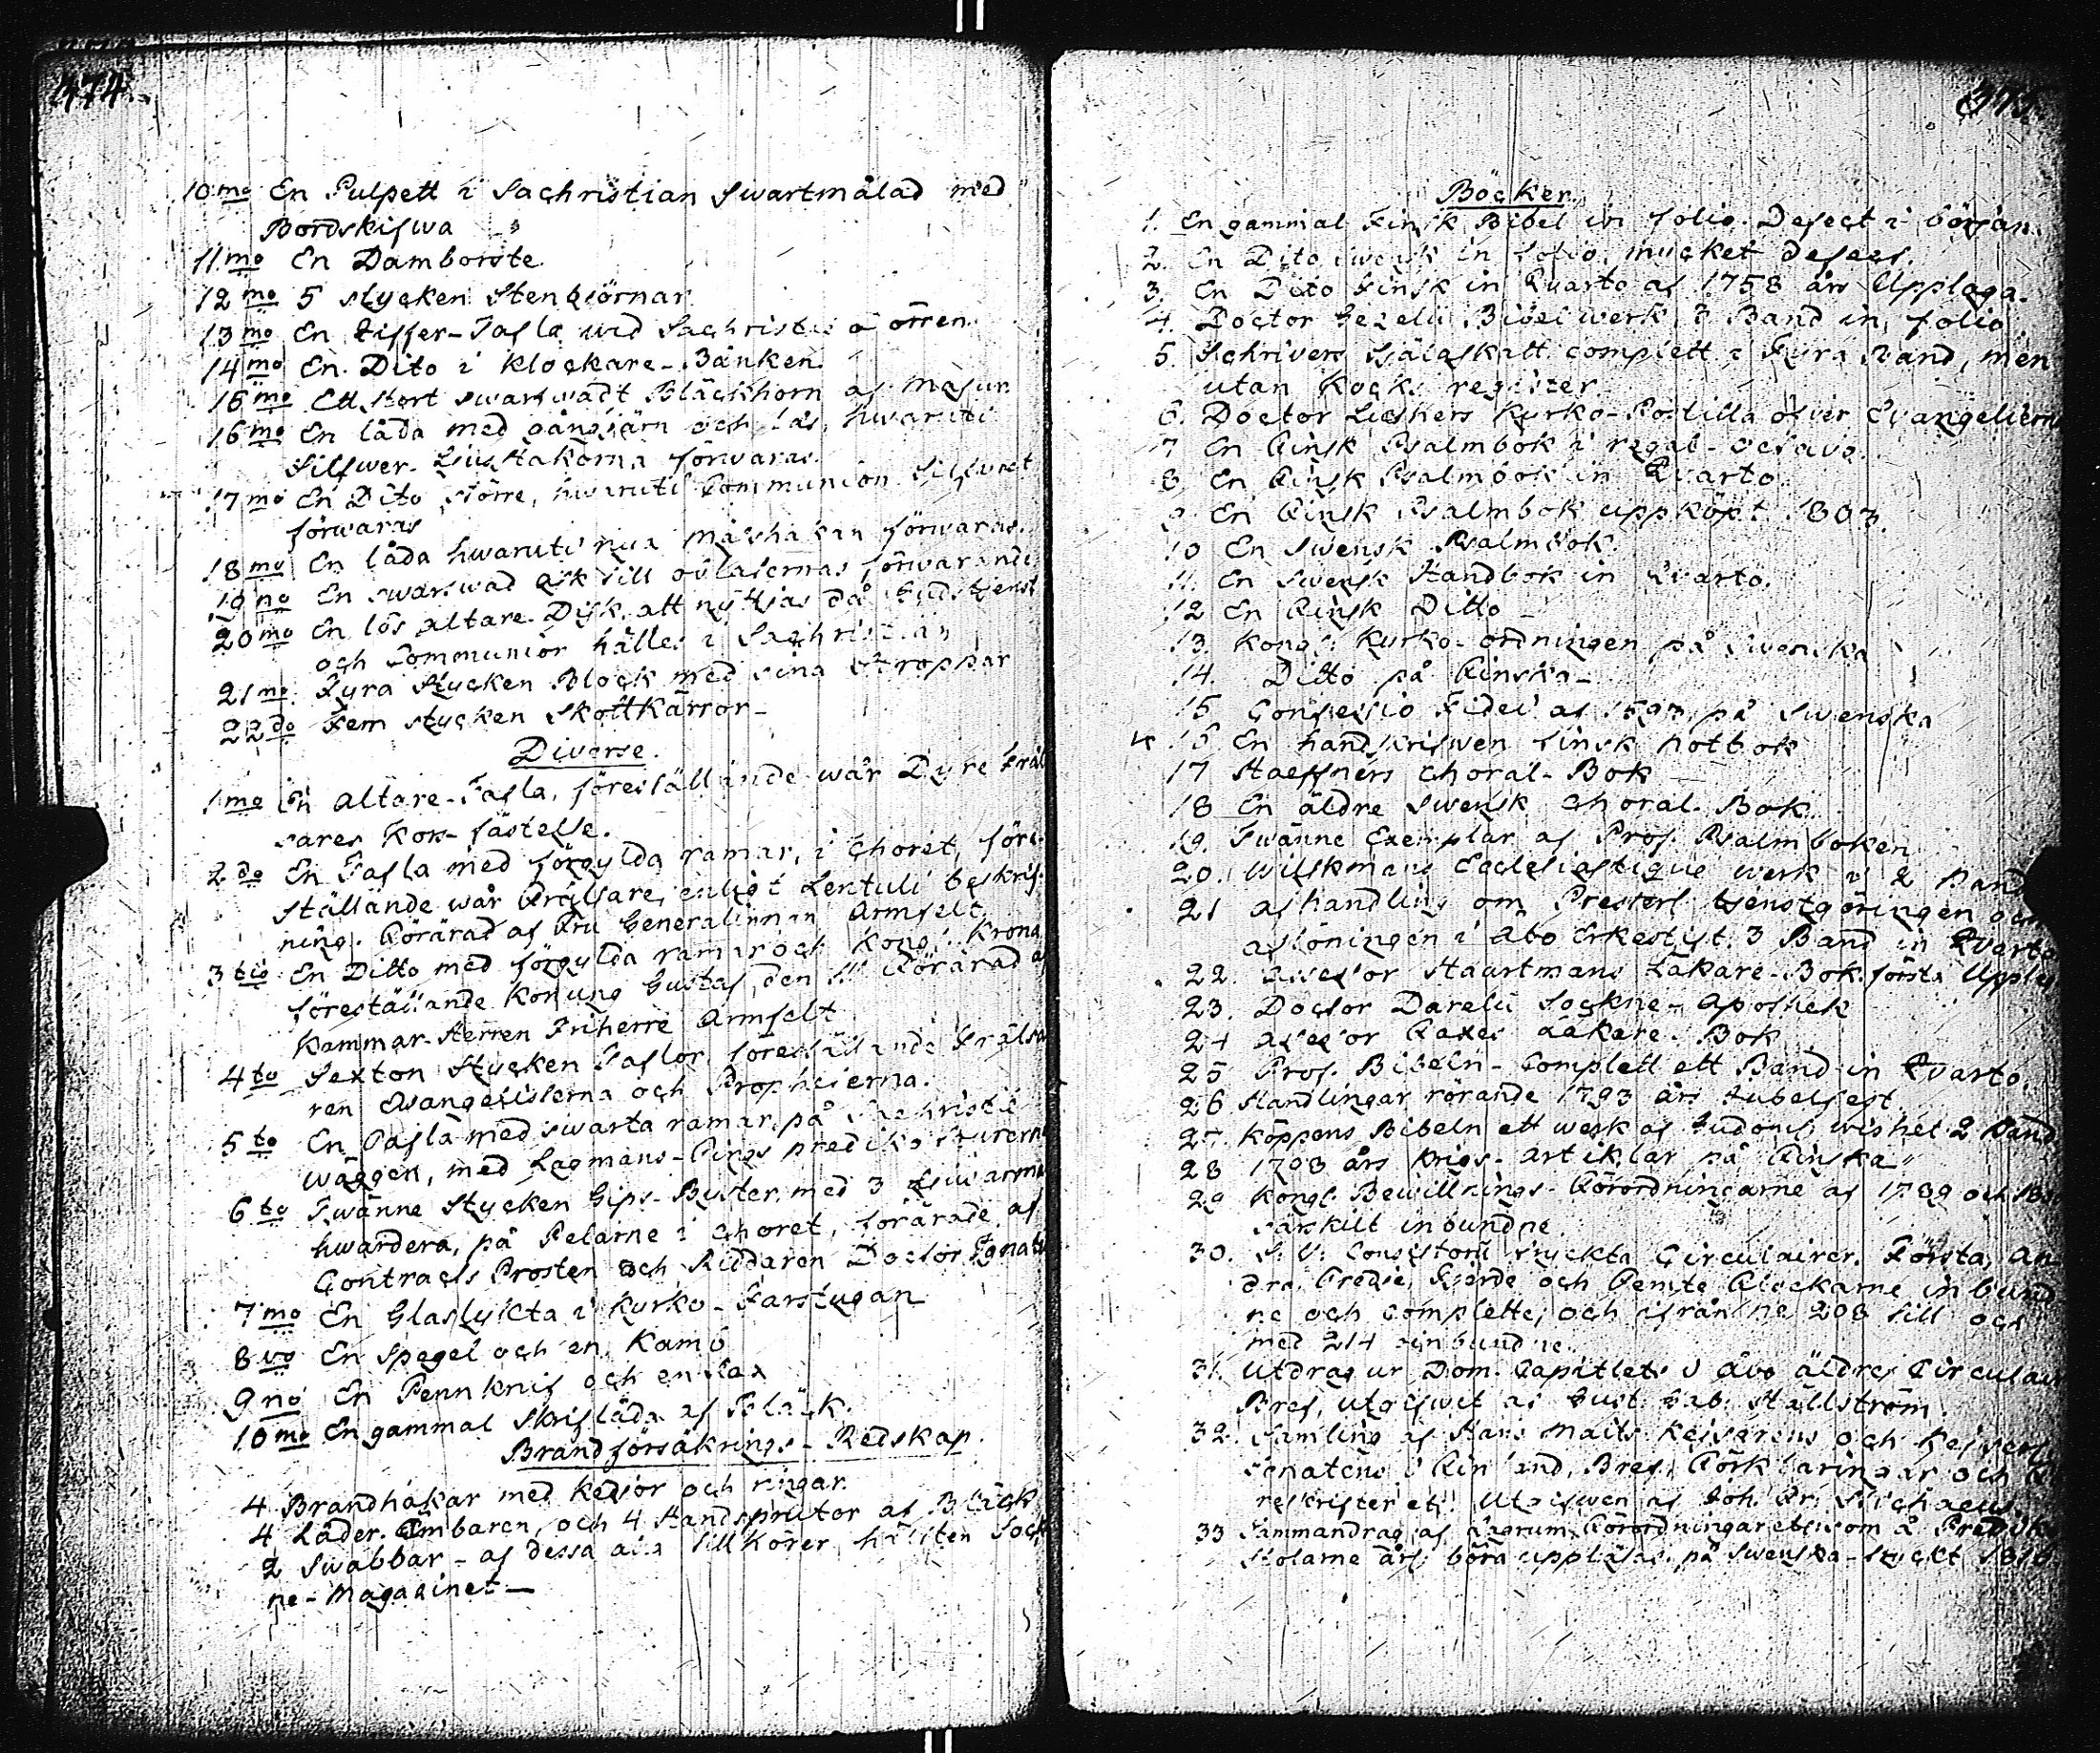 474.
10mo En Pulpett i Sachristian Swartmålad med
Bordskifwa
11mo En Damborste.
12mo 5 stycken Stenbjörnar
13mo En Ziffer-Tafla wid Sachristie dörren.
14mo En Dito i Klockare-Bänken.
15mo Ett stort swarfwadt Bläckhorn af Masur.
16mo En låda med gångjärn och lås, hwaruti
Silfwer-Ljusstakarna förwaras.
17mo En Dito större, hwaruti Communion Silfwret
förwaras
18mo En låda hwaruti nya Mässhakan förwaras.
19no En swarfwad ask till oblaternas förwarande
20mo En lös altare-Disk, att nyttjas då Gudstjenst
och Communion hålles i Sachristian
21mo Fyra Stycken Block med sina Stroppar
22do Fem stycken Skottkärror-
Diverse.
1mo En Altare-Tafla, föreställande wår Dyre Fräl
sares Kors-fästelse.
2do En Tafla med förgylda ramar, i Choret, före-
ställande wår Frälsare, enligt Lentuli beskrif-
ning. Förärad af Fru Generalinnan Armfelt
3tio En Ditto med förgylda ramar och Kongl. Krona
föreställande Konung Gustaf den III Förärad af
Kammar-Herren Friherre Armfelt
4to Sexton Stycken Taflor, föreställande Frälsa
ren Evangelisterna och Propheterna.
5to En Tafla med swarta ramar, på Sachristie
wäggen, med Lagmans-Tings prediko
6to Twänne Stycken Gips-Byster, med 3
hwardera, på Pelarne i Choret, förärade af
Contracts Prosten och Riddaren Doctor Ignati
7mo En Glaslykta i Kyrko-Farstugan
8vo En Spegel och en Kam
9no En Pennknif och en Sax
10mo En gammal Skriflåda af Bläck.
Brandförsäkrings-Redskap.
4 Brandhakar med kedjor och ringar.
4 Läder-Ämbaren, och 4 Handsprutor af Bläck
2 Swabbar - af dessa alla tillhörer hälften Sock
ne-Magasinet-
Böcker.
1. En gammal Finsk Bibel in folio. Defect i början.
2. En Dito swensk in folio, mycket defect.
3. En Dito Finsk in Quarto af 1758 års Upplaga.
4. Doctor Gezelii Bibelwerk, 3 Band in folio.
5. Schrivers Själaskatt complett i Fyra Band, men
utan Kocks register.
6. Doctor Lütkens Kyrko-Postilla öfver Evangelierna
7 En Finsk Psalmbok i regal-octavo.
8 En Finsk Psalmbok in Quarto.
9 En Finsk Psalmbok uppköpt 1803.
10 En Swensk Psalmbok.
11. En Swensk Handbok in Quarto.
12 En Finsk Ditto -
13. Kongl. Kyrko-ordningen på Swenska
14. Ditto på Finska-
15 Confessio Fidei af 1593 på Swenska
16 En handskrifwen finsk notbok
17 Haeffners Choral-Bok
18 En äldre Swensk Choral-Bok
19. Twänne Exemplar af Prof. Psalmboken
20. Wilskmans Ecclesiastique werk i 2 Band
21 Afhandling om Presterl. tjenstgöringen och
aflöningen i Åbo Erkestift. 3 Band in Quarto
22. Assessor Haartmans Läkare-Bok första Uppl
23. Doctor Darelii Sockne-Apothek
24 Assessor Faxes Läkare-Bok
25 Prof. Bibeln-Complett ett Band in Quarto.
26 Handlingar rörande 1793 års Jubelfest
27. Köppens Bibeln ett werk af Gudoml. wishet 2 Band
28 1798 års Krigs-artiklar på Finska
29 Kongl. Bewillnings-Förordningarne af 1789 och
särskilt inbundne
30. S. V. Consistorii tryckta Circulairer. Första, An
dra, Tredje, Fjerde och Femte Flockarne inbund
ne och complette, och ifrån ne 208 till och
med 214 oinbundne.
31. Utdrag ur Dom-Capitlets i Åbo äldre Circulair
Bref, utgifwit af Gust. Gab. Hällström.
32. Samling af Hans Maits Kejsarens och Kejserl.
Senatens i Finland, Bref, Förklaringar och
reskripter etc. Utgifwen af Joh.
33 Sammandrag af Förordningar etc som å Prediko
Stolarne årl. böra uppläsas, på Swenska-tryckt